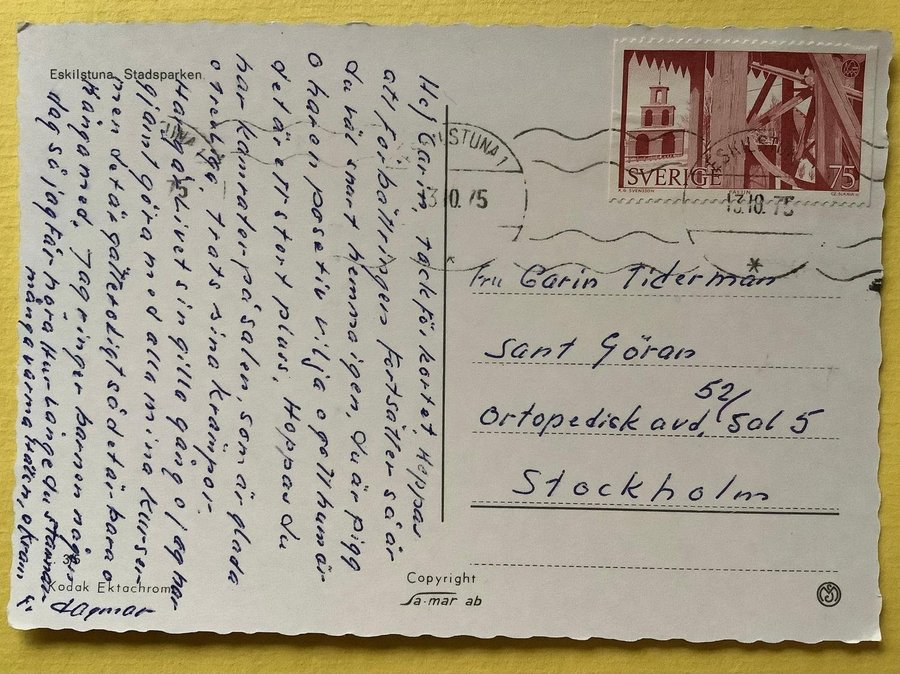 Eskilstuna Stadsparken
Hej Carin, tack för kortet, Hoppas
att förbättringen fortsätter så är
du väl snart hemma igen, du är pigg
o har en posetiv vilja o gott humör
det är ett stort pluss, Hoppas du
har kamrater på salen, som är glada
o trevliga, trots sina krämpor.
Här går livet sin gilla gång o jag har
gjänt göra med alla mina kurser
men det är gättetodigt så det är bara o
hänga med, Jag ringer barnen någon
dag så jag får höra hur länge du stannar
många varma hälsn, o kram
fr Dagmar
38
Kodak Ektachrome
Copyright
Sa-mar ab
ESKILSTUNA 1
13.10.75
ESKILSTUNA
13.10.75
SVERIGE 75
K.G. SVENSSON FALUN CZ. SLANIA SC
Fru Carin Tiderman
Sant Göran
Ortopedisk avd, 52/ Sal 5
Stockholm